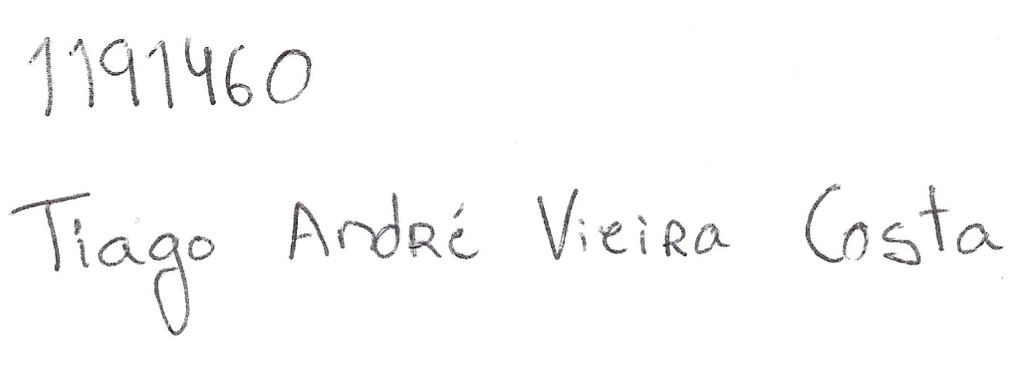 1191460
Tiago André Vieira Costa